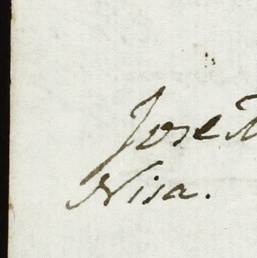 Jose M
Nisa.